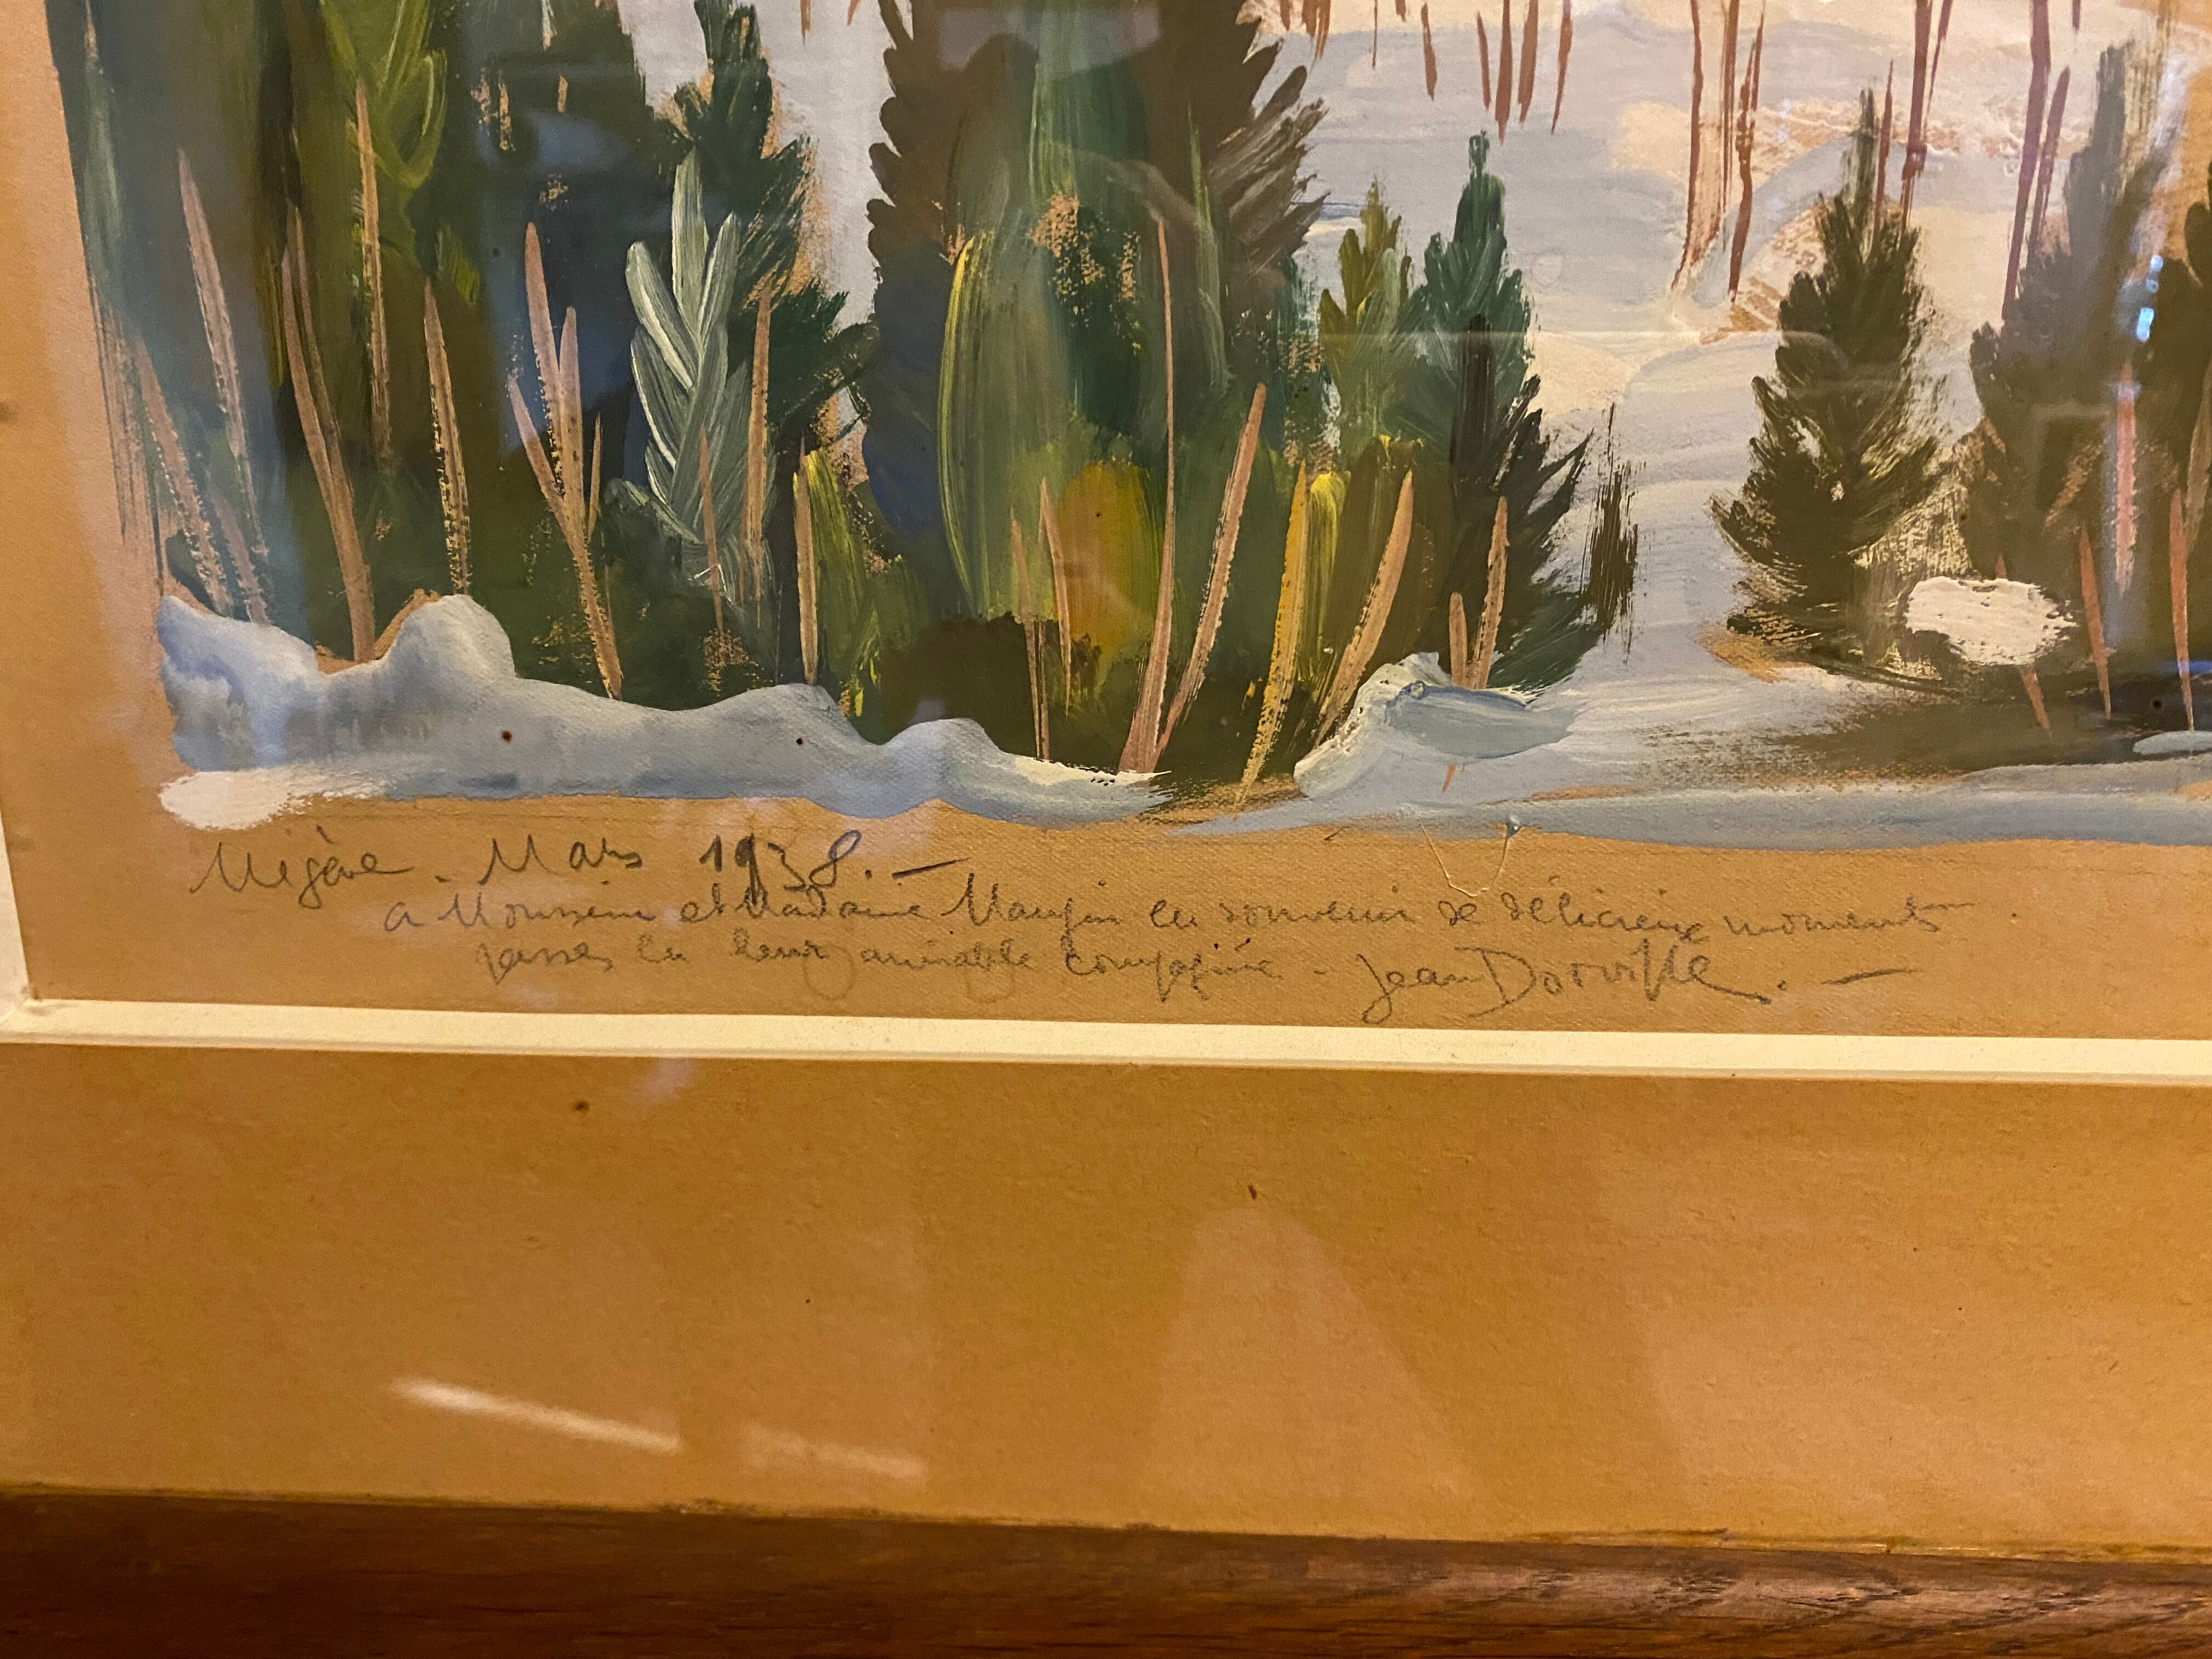 Megève - Mars 1938. —
a Monsieur et Madame en souvenir de délicieux moments
passés en leur aimable compagnie - Jean Dorville. —